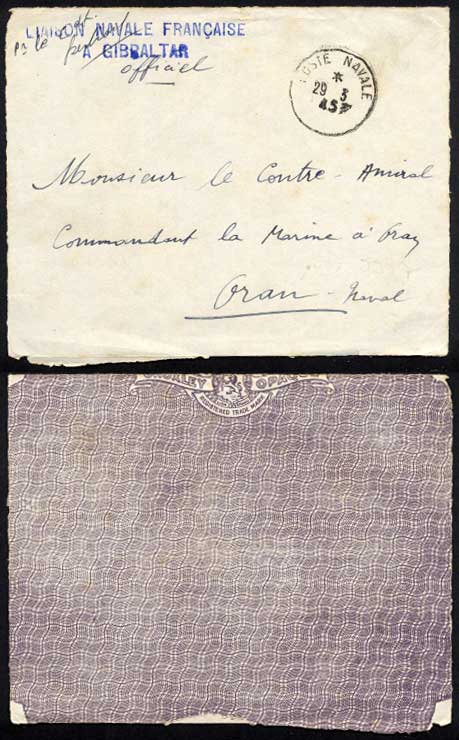 LIAISON NAVALE FRANÇAISE
A GIBRALTAR
pr le
officiel
POSTE NAVALE
*
29 3
45
Monsieur le Contre-Amiral
Commandant la Marine à Oran
Oran - Naval
REGISTERED TRADE MARK